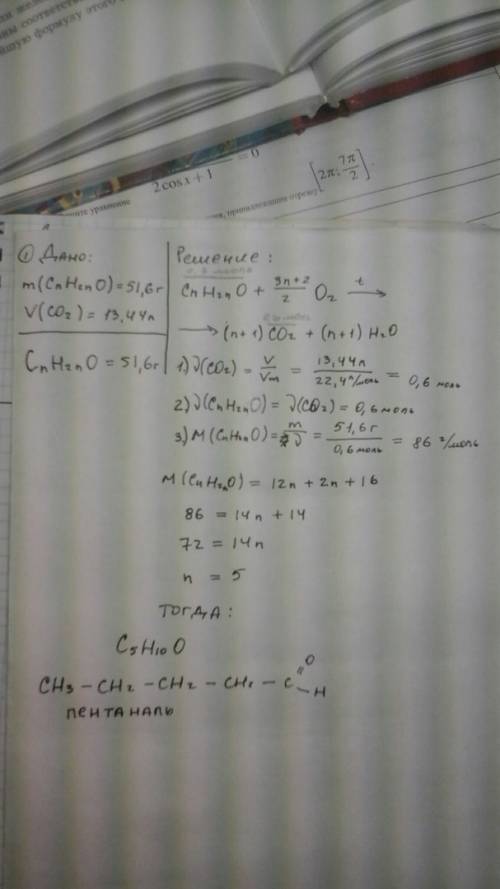 ны соответств
йшую формулу этого
2cosx+1 = 0
[2π; 7π/2].
уравнение
① Дано:
m(CnH2nO) = 51,6г
V(CO2) = 13,44л
CnH2nO = 51,6г
Решение:
CnH2nO + 3n+2/2 O2 t→
→ (n+1) CO2 + (n+1) H2O
1) ν(CO2) = V/Vm = 13,44л/22,4л/моль = 0,6 моль
2) ν(CnH2nO) = ν(CO2) = 0,6 моль
3) M(CnH2nO) = m/ν = 51,6г/0,6 моль = 86 г/моль
M(CnH2nO) = 12n + 2n + 16
86 = 14n + 14
72 = 14n
n = 5
ТОГДА:
C5H10O
CH3 – CH2 – CH2 – CH2 – C = O – H
ПЕНТАНАЛЬ